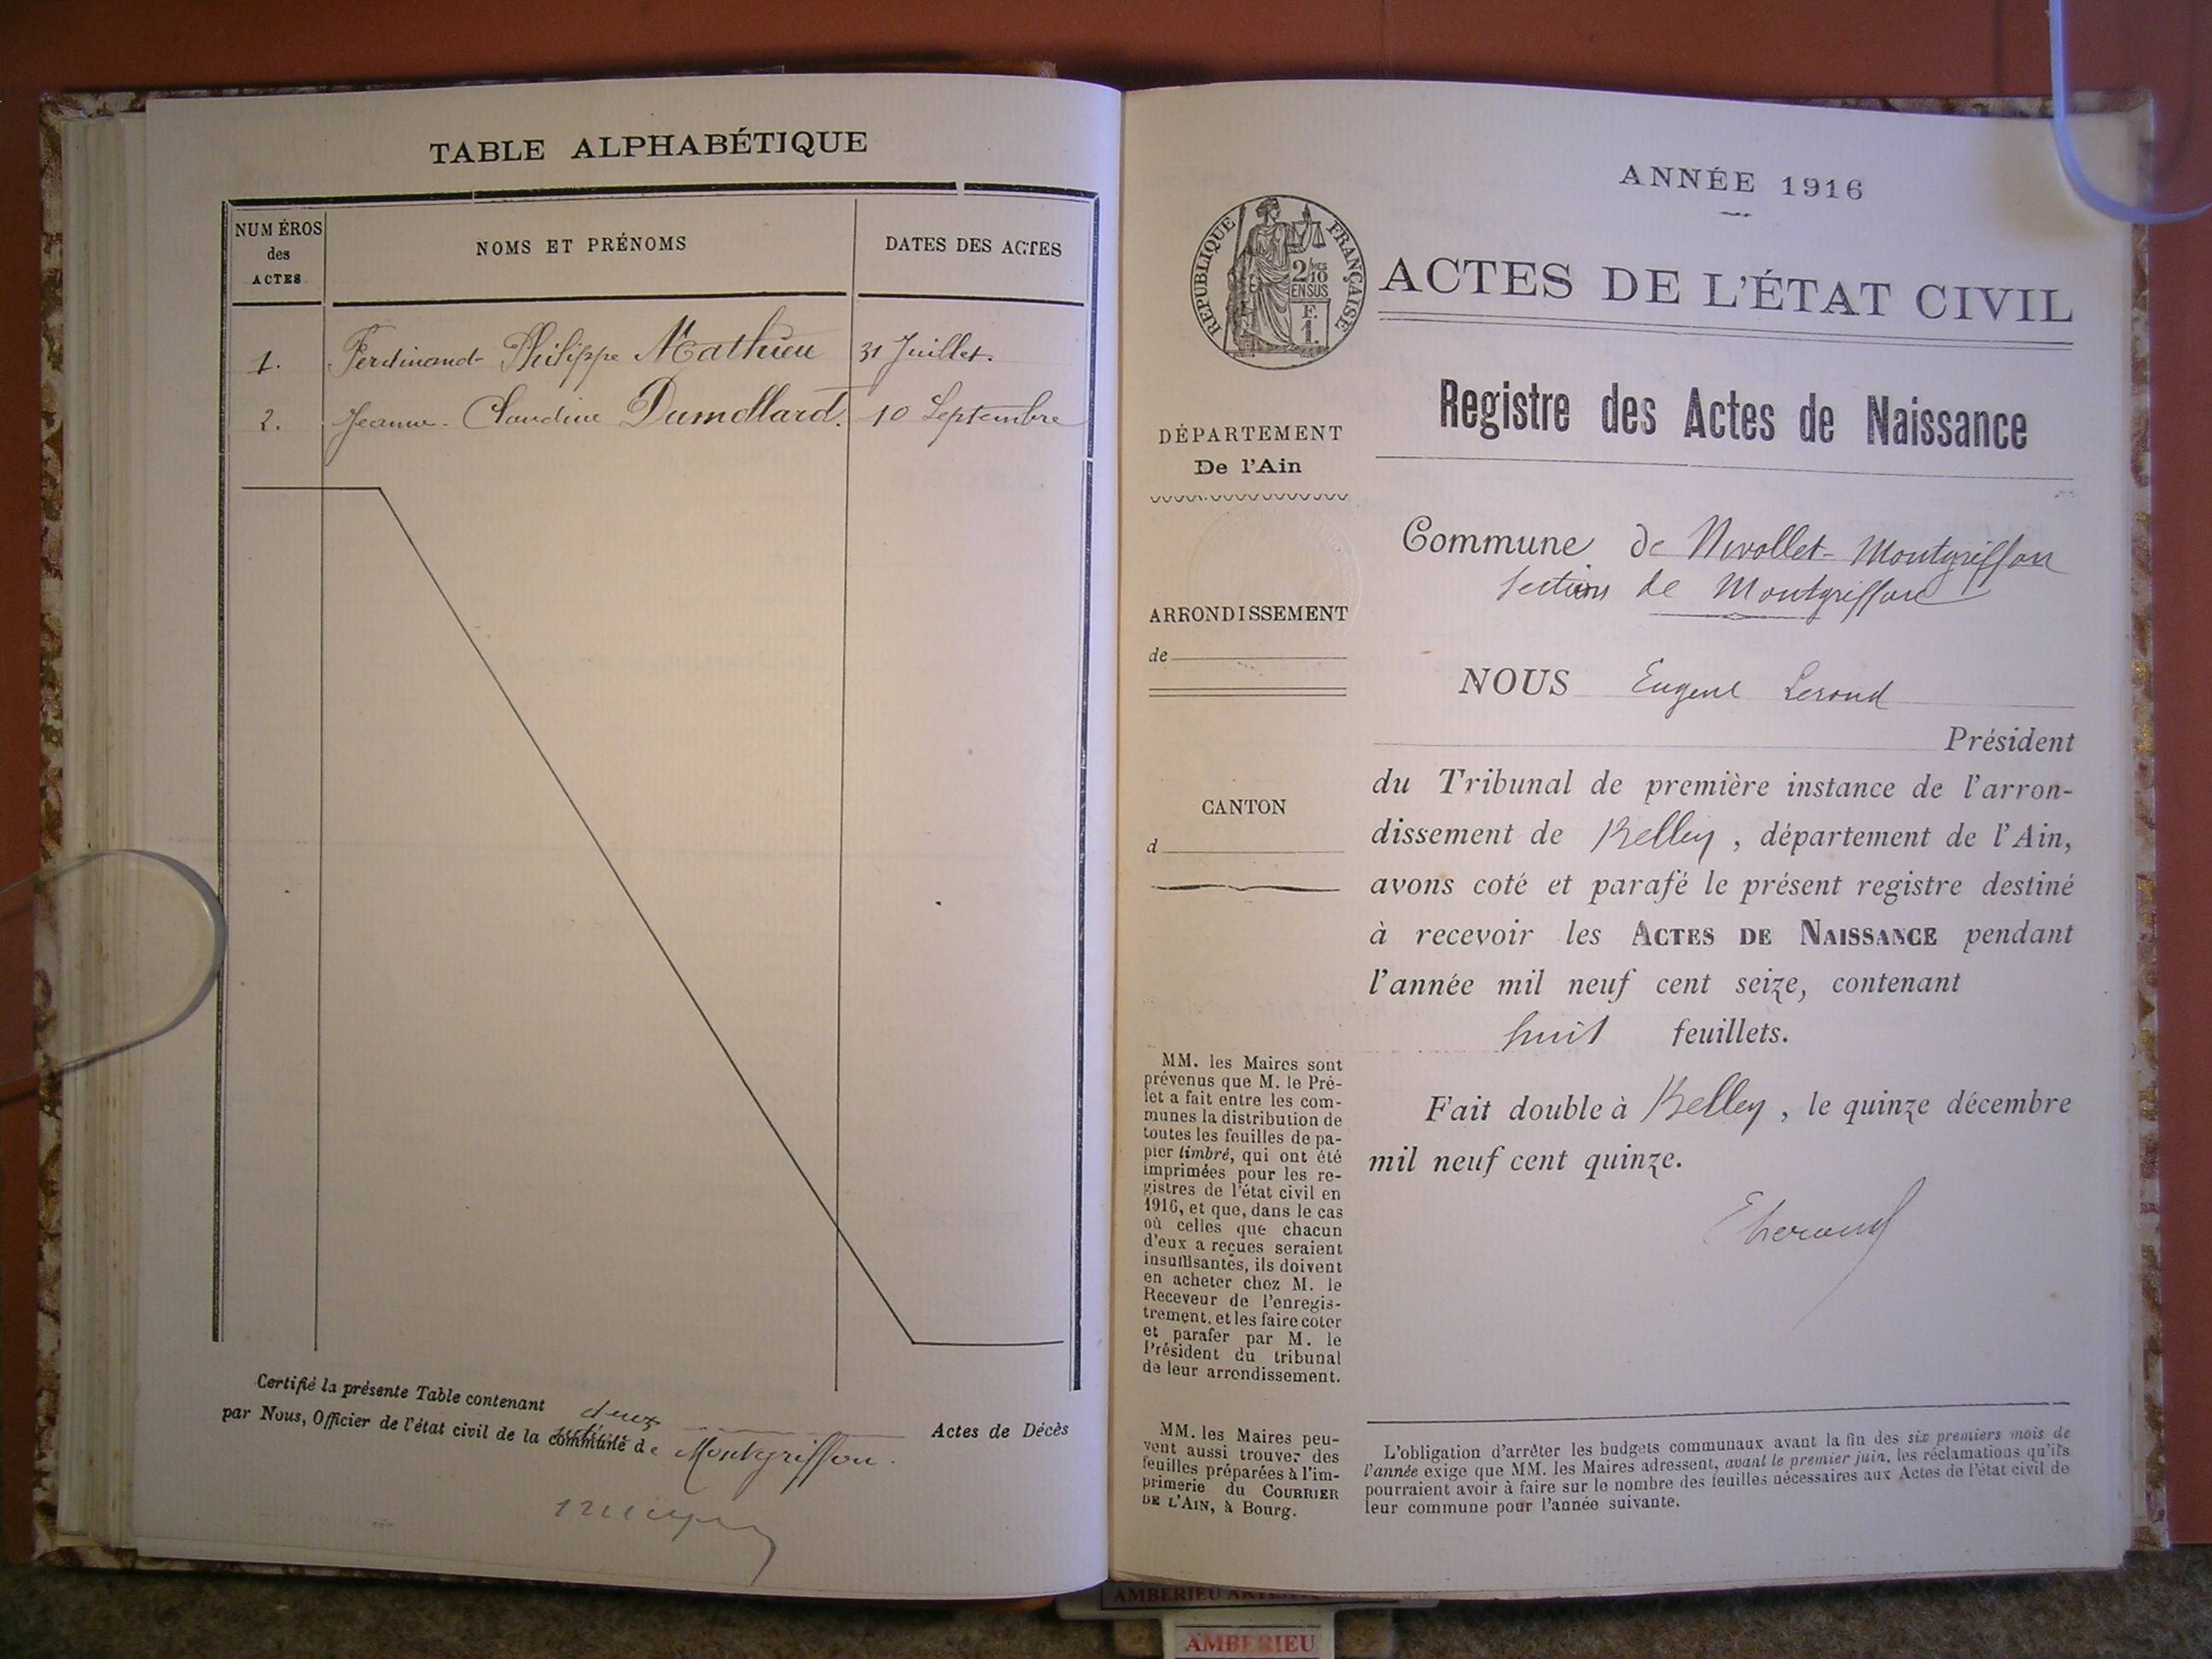 TABLE ALPHABÉTIQUE
NUMÉROS
des
ACTES
NOMS ET PRÉNOMS
DATES DES ACTES
1. Ferdinand-Philippe Mathieu 31 Juillet.
2. Jeanne-Claudine Dumollard. 10 Septembre
Certifié la présente Table contenant deux Actes de Décès
par Nous, Officier de l'état civil de la commune de Montgriffon.
ANNÉE 1916
REPUBLIQUE FRANÇAISE
2/10
EN SUS
F.
1.
ACTES DE L'ÉTAT CIVIL
Registre des Actes de Naissance
DÉPARTEMENT
De l'Ain
ARRONDISSEMENT
de
CANTON
d
MM. les Maires sont
prévenus que M. le Pré-
fet a fait entre les com-
munes la distribution de
toutes les feuilles de pa-
pier timbré, qui ont été
imprimées pour les re-
gistres de l'état civil en
1916, et que, dans le cas
où celles que chacun
d'eux a reçues seraient
insuffisantes, ils doivent
en acheter chez M. le
Receveur de l'enregis-
trement, et les faire coter
et parafer par M. le
Président du tribunal
de leur arrondissement.
MM. les Maires peu-
vent aussi trouver des
feuilles préparées à l'im-
primerie du COURRIER
DE L'AIN, à Bourg.
Commune de Nivollet-Montgriffon
section de Montgriffon
NOUS Eugene Lerond
Président
du Tribunal de première instance de l'arron-
dissement de Belley, département de l'Ain,
avons coté et parafé le présent registre destiné
à recevoir les ACTES DE NAISSANCE pendant
l'année mil neuf cent seize, contenant
huit feuillets.
Fait double à Belley, le quinze décembre
mil neuf cent quinze.
L'obligation d'arrêter les budgets communaux avant la fin des six premiers mois de
l'année exige que MM. les Maires adressent, avant le premier juin, les réclamations qu'ils
pourraient avoir à faire sur le nombre des feuilles nécessaires aux Actes de l'état civil de
leur commune pour l'année suivante.
AMBERIEU
AMBERIEU